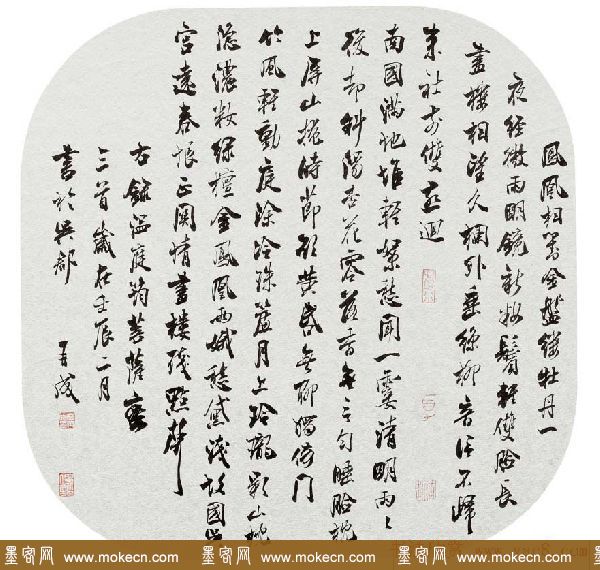 鳳凰相對金盤縷牡丹一
夜經微雨明鏡新妝鬢輕雙臉長
畫樓相望久欄外垂絲柳音信不歸
來社前雙燕迴
南園滿地堆輕絮愁聞一霎清明雨〻
後却斜陽杏花零落香無言勻睡臉枕
上屏山掩時節欲黃昏無聊獨倚門
竹風輕動庭除冷珠簾月上玲瓏影山枕
隱濃妝綠檀金鳳凰兩蛾愁黛淺故國吳
宮遠春恨正關情畫樓殘點聲
右錄溫庭筠菩薩蠻
三首歲在壬辰二月
書於吳郡
墨客网 www.mokecn.com 墨客网 www.mokecn.com 墨客网 www.mokecn.com 墨客网